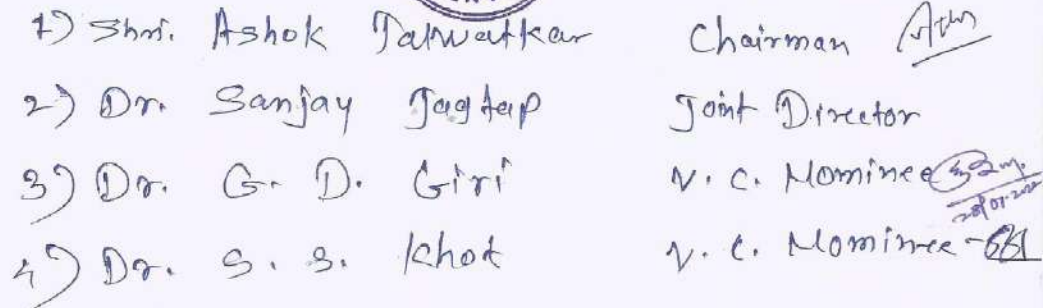 1) Shri. Ashok Talwatkar Chairman
2) Dr. Sanjay Jagtap Joint Director
3) Dr. G. D. Giri V. C. Nominee
4) Dr. S. S. Khot V. C. Nominee -